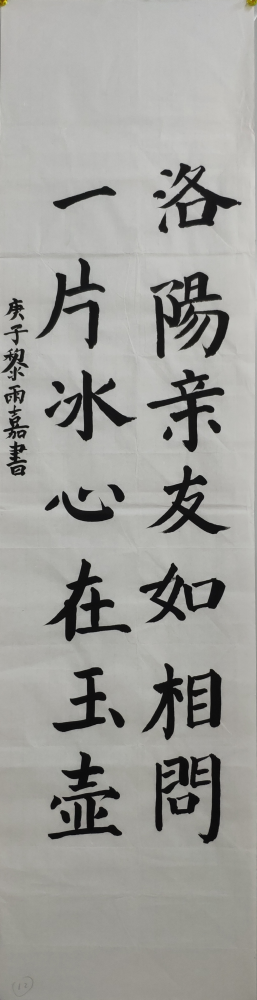 洛陽亲友如相問
一片冰心在玉壺
庚子黎雨嘉書
12